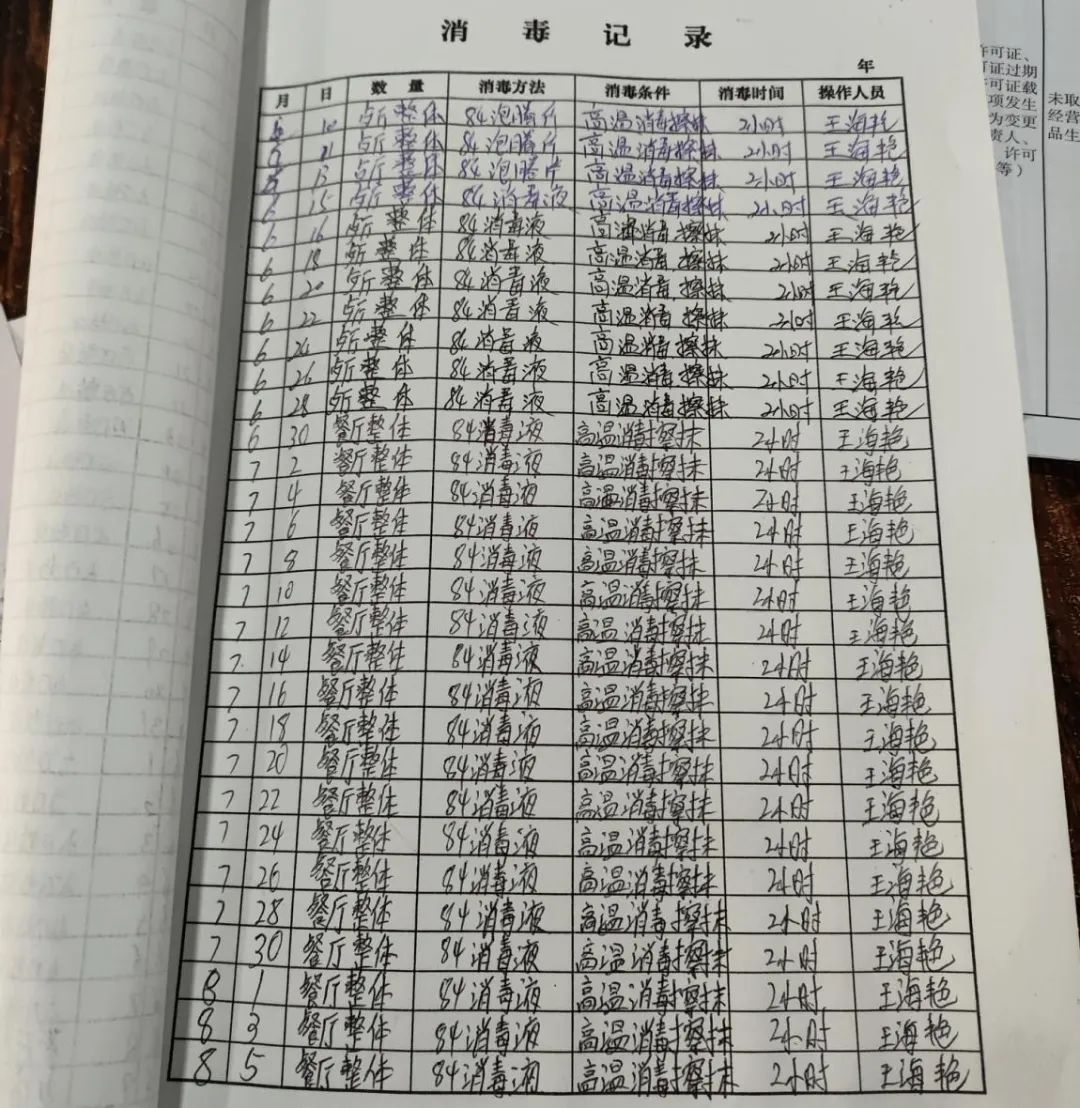 消毒记录
年
月 日 数量 消毒方法 消毒条件 消毒时间 操作人员
6 10 占厅整体 84泡腾片 高温消毒擦抹 2小时 王海艳
6 11 占厅整体 84泡腾片 高温消毒擦抹 2小时 王海艳
13 占厅整体 84泡腾片 高温消毒擦抹 2小时 王海艳
6 15 占厅整体 84消毒液 高温消毒擦抹 2小时 王海艳
6 16 占厅整体 84消毒液 高温消毒擦抹 2小时 王海艳
6 18 占厅整体 84消毒液 高温消毒擦抹 2小时 王海艳
6 20 占厅整体 84消毒液 高温消毒擦抹 2小时 王海艳
6 22 占厅整体 84消毒液 高温消毒擦抹 2小时 王海艳
6 24 占厅整体 84消毒液 高温消毒擦抹 2小时 王海艳
6 26 占厅整体 84消毒液 高温消毒擦抹 2小时 王海艳
6 28 占厅整体 84消毒液 高温消毒擦抹 2小时 王海艳
6 30 餐厅整体 84消毒液 高温消毒擦抹 2小时 王海艳
7 2 餐厅整体 84消毒液 高温消毒擦抹 2小时 王海艳
7 4 餐厅整体 84消毒液 高温消毒擦抹 2小时 王海艳
7 6 餐厅整体 84消毒液 高温消毒擦抹 2小时 王海艳
7 8 餐厅整体 84消毒液 高温消毒擦抹 2小时 王海艳
7 10 餐厅整体 84消毒液 高温消毒擦抹 2小时 王海艳
7 12 餐厅整体 84消毒液 高温消毒擦抹 2小时 王海艳
7 14 餐厅整体 84消毒液 高温消毒擦抹 2小时 王海艳
7 16 餐厅整体 84消毒液 高温消毒擦抹 2小时 王海艳
7 18 餐厅整体 84消毒液 高温消毒擦抹 2小时 王海艳
7 20 餐厅整体 84消毒液 高温消毒擦抹 2小时 王海艳
7 22 餐厅整体 84消毒液 高温消毒擦抹 2小时 王海艳
7 24 餐厅整体 84消毒液 高温消毒擦抹 2小时 王海艳
7 26 餐厅整体 84消毒液 高温消毒擦抹 2小时 王海艳
7 28 餐厅整体 84消毒液 高温消毒擦抹 2小时 王海艳
7 30 餐厅整体 84消毒液 高温消毒擦抹 2小时 王海艳
8 1 餐厅整体 84消毒液 高温消毒擦抹 2小时 王海艳
8 3 餐厅整体 84消毒液 高温消毒擦抹 2小时 王海艳
8 5 餐厅整体 84消毒液 高温消毒擦抹 2小时 王海艳
许可证、
可证过期
许可证载
项发生
为变更
责人、
许可
等）
未取
经营
品生